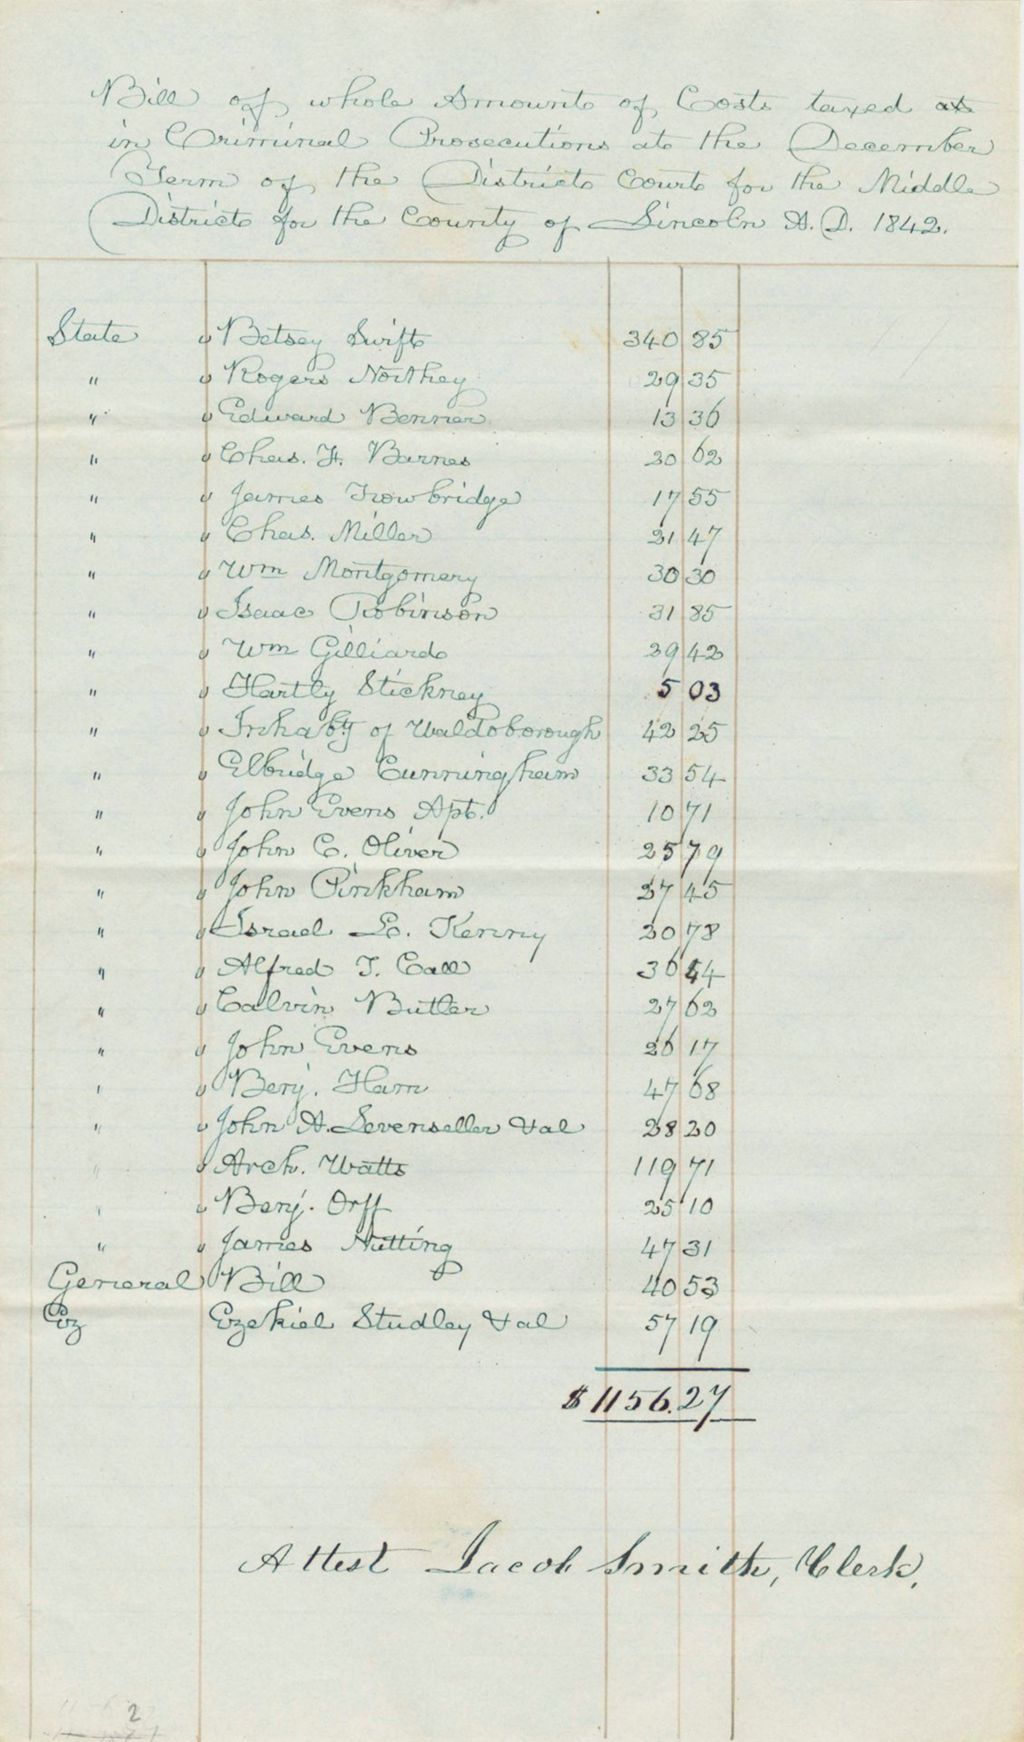 Bill of whole Amount of Costs taxed at
in Criminal Prosecutions at the December
Term of the District Court for the Middle
District for the County of Lincoln A.D. 1842.
State v Betsey Swift 340 85
" v Rogers Northey 29 35
" v Edward Benner 13 36
" v Chas. H. Barnes 20 62
" v James Trowbridge 17 55
" v Chas. Miller 21 47
" v Wm Montgomery 30 30
" v Isaac Robinson 31 85
" v Wm Gilliard 29 42
" v Hartly Stickney 5 03
" v Inhabts of Waldoborough 42 25
" v Elbridge Cunningham 33 54
" v John Evens Apt. 10 71
" v John C. Oliver 25 79
" v John Pinkham 27 45
" v Israel L. Kenny 20 78
" v Alfred T. Call 36 44
" v Calvin Butler 27 62
" v John Evens 26 17
" v Benj. Ham 47 68
" v John A. Levenseller & al 28 20
" v Arch. Watts 119 71
" v Benj. Orff 25 10
" v James Nutting 47 31
General Bill 40 53
Ezekiel Studley & al 57 19
$1156.27
Attest Jacob Smith, Clerk.
2